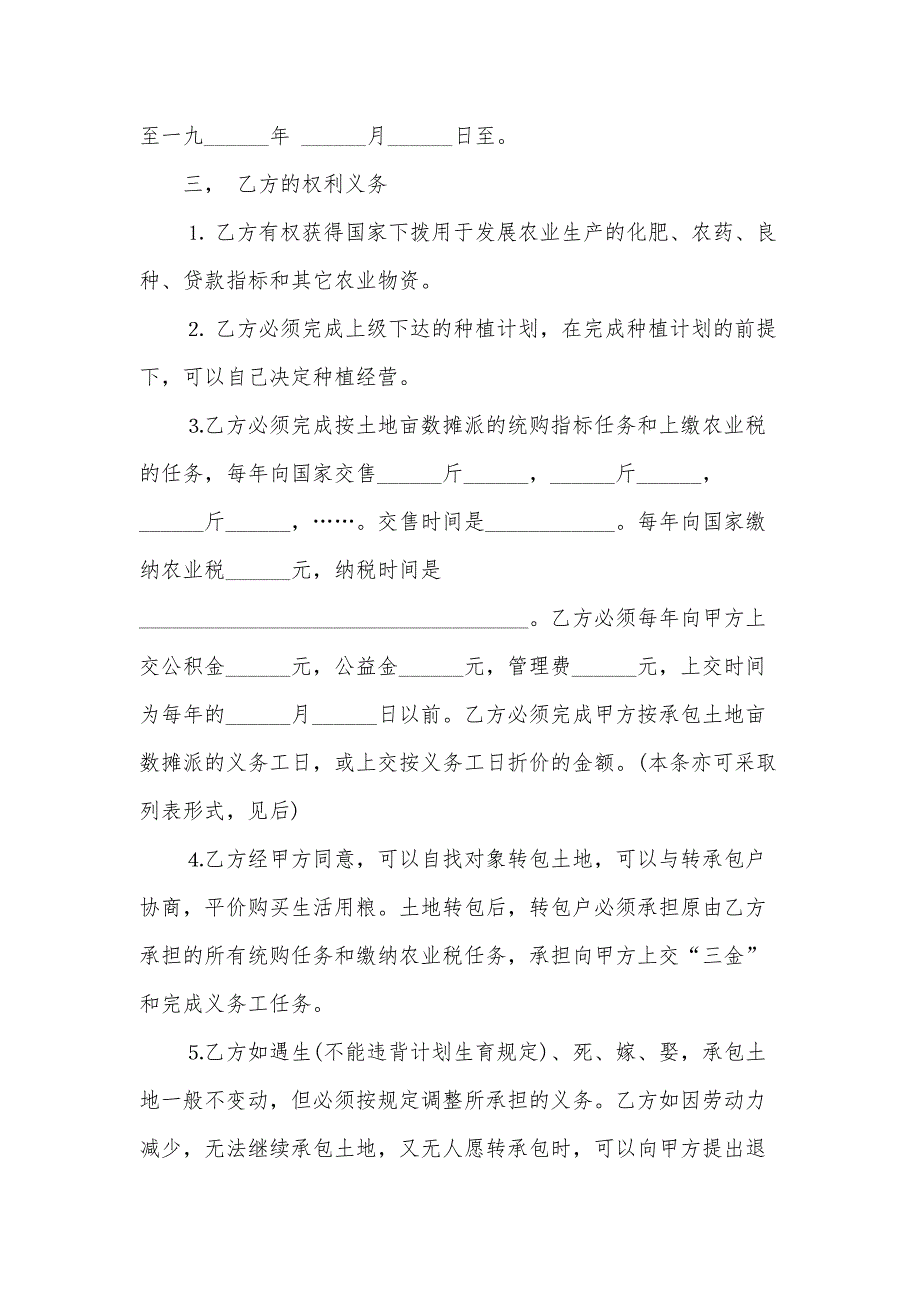 至一九______年 ______月______日至。
三， 乙方的权利义务
1. 乙方有权获得国家下拨用于发展农业生产的化肥、农药、良
种、贷款指标和其它农业物资。
2. 乙方必须完成上级下达的种植计划，在完成种植计划的前提
下，可以自己决定种植经营。
3.乙方必须完成按土地亩数摊派的统购指标任务和上缴农业税
的任务，每年向国家交售______斤______，______斤______，
______斤______，……。交售时间是____________。每年向国家缴
纳农业税______元，纳税时间是
____________________________________。乙方必须每年向甲方上
交公积金______元，公益金______元，管理费______元，上交时间
为每年的______月______日以前。乙方必须完成甲方按承包土地亩
数摊派的义务工日，或上交按义务工日折价的金额。(本条亦可采取
列表形式，见后)
4.乙方经甲方同意，可以自找对象转包土地，可以与转承包户
协商，平价购买生活用粮。土地转包后，转包户必须承担原由乙方
承担的所有统购任务和缴纳农业税任务，承担向甲方上交“三金”
和完成义务工任务。
5.乙方如遇生(不能违背计划生育规定)、死、嫁、娶，承包土
地一般不变动，但必须按规定调整所承担的义务。乙方如因劳动力
减少，无法继续承包土地，又无人愿转承包时，可以向甲方提出退